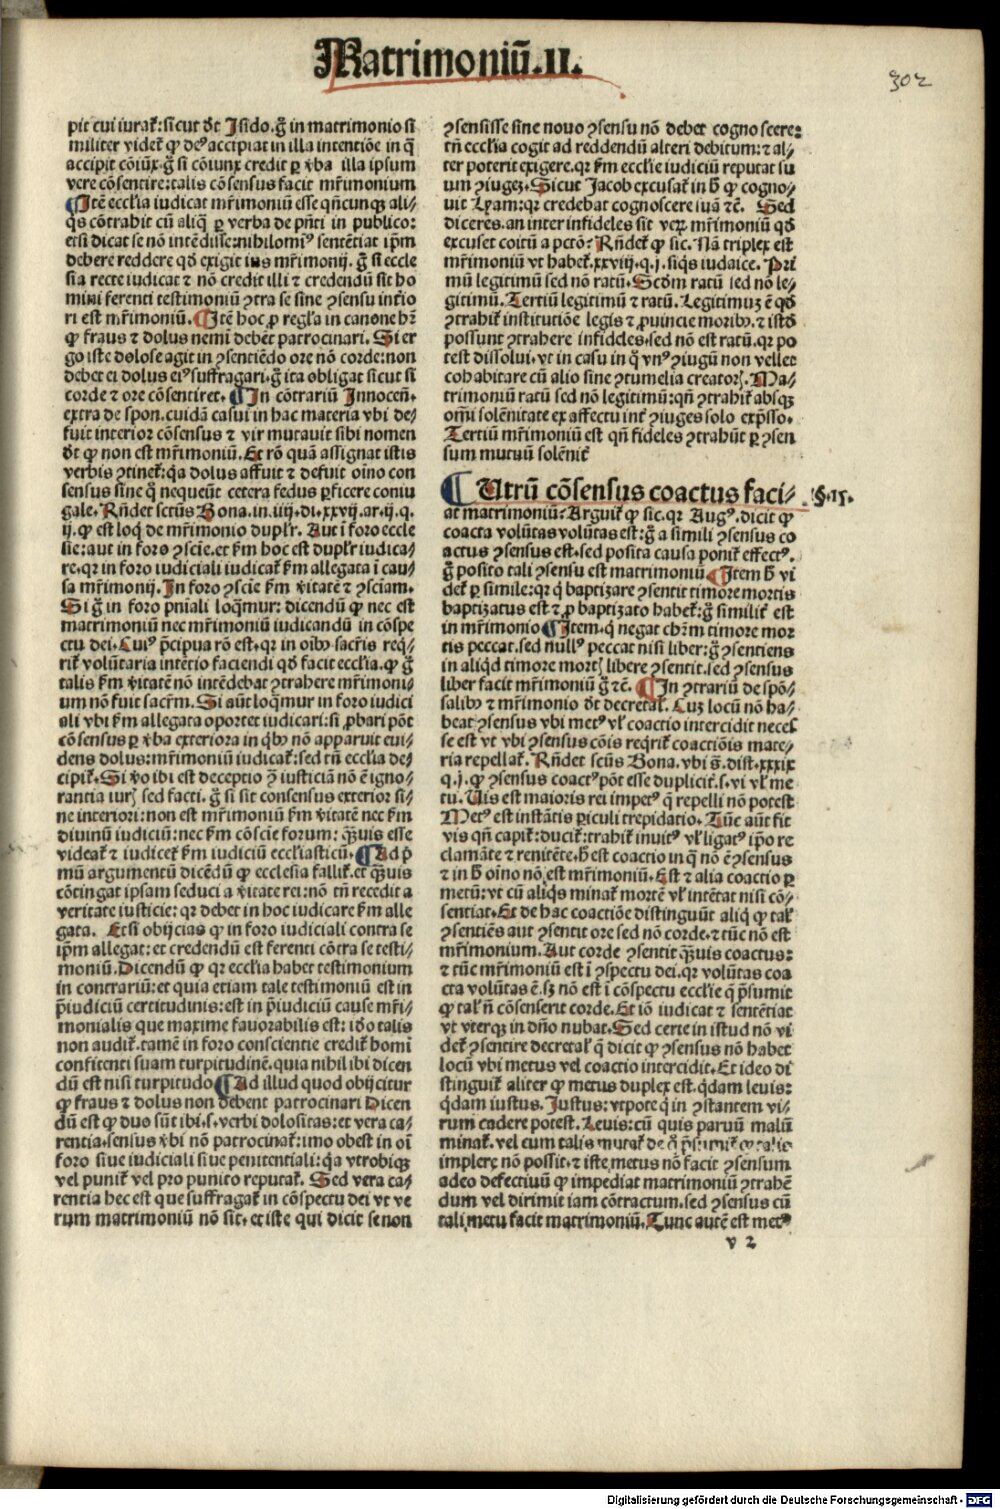 Matrimoniū.II.
302
pit cui iurat᷒: sicut dt Isido. g̃ in matrimonio si
militer videt᷒ ꝙ deꝰ accipiat in illa intentiōe in q̄
accipit cōiūx. g̃ si cōiunx credit ꝑ v̓ba illa ipsum
vere cōsentire: talis cōsensus facit mr̄imonium
¶ Itē ecclīa iudicat mr̄imoniū esse qn̄cunqꝫ ali⸗
q̄s cōtrahit cū aliq̄ ꝑ verba de pn̄ti in publico:
etsi dicat se nō intēdisse: nihilomiꝰ sentētiat ip̄m
debere reddere qd̄ exigit ius mr̄imonij. g̃ si eccle
sia recte iudicat ⁊ nō credit illi ⁊ credendū sit ho
mini ferenti testimoniū ꝯtra se sine ꝯsensu int̓io
ri est mr̄imoniū. ¶ Itē hoc ꝓ regl̓a in canone hr̄
ꝙ fraus ⁊ dolus nemī debēt patrocinari. Si er
go iste dolose agit in ꝯsentiēdo ore nō corde: non
debet ei dolus eiꝰ suffragari. g̃ ita obligat sicut si
corde ⁊ ore cōsentiret. ¶ In cōtrariū Innocen̄.
extra de spon. cuidā casui in hac materia vbi de⸗
fuit interior cōsensus ⁊ vir mutauit sibi nomen
dt ꝙ non est mr̄imoniū. Et rō quā assignat istis
verbis ꝯtinet᷒: q̓a dolus affuit ⁊ defuit oīno con
sensus sine q̄ nequeūt cetera fedus ꝑficere coniu
gale. Rn̄det sctūs Bona. in. iiij. di. xxvij. ar. ij. q.
ij. ꝙ est loq̄ de mr̄imonio dupl̓r. Aut ī foro eccle
sie: aut in foro ꝯscie. et ẜm hoc est dupl̓r iudica⸗
re. qr in foro iudiciali iudicat᷒ ẜm allegata ī cau⸗
sa mr̄imonij. In foro ꝯscie ẜm v̓itatē ⁊ ꝯsciam.
Si g̃ in foro pn̄iali loq̄mur: dicendū ꝙ nec est
matrimoniū nec mr̄imoniū iudicandū in cōspe
ctu dei. Cuiꝰ p̄cipua rō est. qr in oībꝰ sacr̄is req̄⸗
rit᷒ volūtaria intētio faciendi qd̄ facit ecclīa. ꝙ g̃
talis ẜm v̓itatē nō intēdebat ꝯtrahere mr̄imoni⸗
um nō fuit sacr̄m. Si aūt loq̄mur in foro iudici
ali vbi ẜm allegata oportet iudicari: si ꝓbari pōt
cōsensus ꝑ v̓ba exteriora in q̄bꝰ nō apparuit eui⸗
dens dolus: mr̄imoniū iudicat᷒: sed tn̄ ecclīa de⸗
cipit᷒. Si v̓o ibi est deceptio ꝯ̄ iusticiā nō ē igno⸗
rantia iurꝭ sed facti. g̃ si sit consensus exterior si⸗
ne interiori: non est mr̄imoniū ẜm v̓itatē nec ẜm
diuinū iudiciū: nec ẜm cōscie forum: qꝫuis esse
videat᷒ ⁊ iudicet᷒ ẜm iudiciū eccl̓iasticū. ¶ Ad p̓
mū argumentū dicēdū ꝙ ecclesia fallit᷒. et qꝫuis
cōtingat ipsam seduci a v̓itate rei: nō tn̄ recedit a
veritate iusticie: qr debet in hoc iudicare ẜm alle
gata. Et si obijcias ꝙ in foro iudiciali contra se
ip̄m allegat: et credendū est ferenti cōtra se testi⸗
moniū. Dicendū ꝙ qr ecclīa habet testimonium
in contrariū: et quia etiam tale testimoniū est in
p̄iudiciū certitudinis: est in p̄iudiciū cause mr̄i⸗
monialis que maxime fauorabilis est: iḋo talis
non audit᷒. tamē in foro conscientie credit᷒ homī
confitenti suam turpitudinē. quia nihil ibi dicen
dū est nisi turpitudo ¶ Ad illud quod obijcitur
ꝙ fraus ⁊ dolus non debent patrocinari Dicen
dū est ꝙ duo sūt ibi. s. verbi dolositas: et vera ca⸗
rentia. sensus v̓bi nō patrocinat᷒: imo obest in oī
foro siue iudiciali siue penitentiali: q̓a vtrobiqꝫ
vel punit᷒ vel pro punito reputat᷒. Sed vera ca⸗
rentia hec est que suffragat᷒ in cōspectu dei vt ve
rum matrimoniū nō sit. et iste qui dicit se non
ꝯsensisse sine nouo ꝯsensu nō debet cognoscere:
tn̄ eccl̓ia cogit ad reddendū alteri debitum: ⁊ al⸗
ter poterit exigere. qr ẜm ecclīe iudiciū reputat su
um ꝯiugeꝫ. Sicut Jacob excusat᷒ in h̓ ꝙ cogno⸗
uit Lyam: qr credebat cognoscere suā ⁊c̄. Sed
diceres. an inter infideles sit verꝫ mr̄imoniū qd̄
excuset coitū a pctō? Rn̄det᷒ ꝙ sic. Nā triplex est
mr̄imoniū vt habet᷒. xxviij. q. j. siqs iudaice. Pri
mū legitimū sed nō ratū. Scd̄m ratū sed nō le⸗
gitimū. Tertiū legitimū ⁊ ratū. Legitimuꝫ ē qd̄
ꝯtrahit᷒ institutiōe legis ⁊ ꝓuincie moribꝰ. ⁊ istd̄
possunt ꝯtrahere infideles. sed nō est ratū. qr po
test dissolui. vt in casu in q̄ vnꝰ ꝯiugū non vellet
cohabitare cū alio sine ꝯtumelia creatorꝭ. Ma⸗
trimoniū ratū sed nō legitimū: qn̄ ꝯtrahit᷒ absqꝫ
om̄i solēnitate ex affectu int̓ ꝯiuges solo expr̄sso.
Tertiū mr̄imoniū est qn̄ fideles ꝯtrahūt ꝑ ꝯsen
sum mutuū solēnit̓
¶ Utrū cōsensus coactus faci⸗ §.15.
at matrimoniū? Arguit᷒ ꝙ sic. qr Augꝰ. dicit ꝙ
coacta volūtas volūtas est: g̃ a simili ꝯsensus co
actus ꝯsensus est. sed posita causa ponit᷒ effectꝰ.
g̃ posito tali ꝯsensu est matrimoniū ¶ Item h̓ vi
det᷒ ꝑ simile: qr q̓ baptizare ꝯsentit timore mortis
baptizatus est ⁊ ꝓ baptizato habet᷒: g̃ similit̓ est
in mr̄imonio ¶ Item. q̓ negat chr̄m timore mor
tis peccat. sed nullꝰ peccat nisi liber: g̃ ꝯsentiens
in aliq̓d timore mortꝭ libere ꝯsentit. sed ꝯsensus
liber facit mr̄imoniū g̃ ⁊c̄. ¶ In ꝯtrariū de spō⸗
salibꝰ ⁊ mr̄imonio dt decretal̓. Cuꝫ locū nō ha⸗
beat ꝯsensus vbi metꝰ vl̓ coactio intercidit neceſ
se est vt vbi ꝯsensus cōis req̓rit᷒ coactiōis mate⸗
ria repellat᷒. Rn̄det sctūs Bona. vbi s̄. dist. xxix
q. j. ꝙ ꝯsensus coactꝰ pōt esse duplicit̓. s. vi vl̓ me
tu. Uis est maioris rei impetꝰ q̓ repelli nō potest
Metꝰ est instātis ꝑiculi trepidatio. Tūc aūt fit
vis qn̄ capit᷒: ducit᷒: trahit᷒ inuitꝰ vl̓ ligatꝰ ip̄o re
clamāte ⁊ renitēte. h̓ est coactio in q̄ nō ē ꝯsensus
⁊ in h̓ oīno nō est mr̄imoniū. Est ⁊ alia coactio ꝑ
metū: vt cū aliq̓s minat᷒ mortē vl̓ intētat nisi cō⸗
sentiat. Et de hac coactiōe distinguūt aliq̓ ꝙ tal̓
ꝯsentiēs aut ꝯsentit ore sed nō corde. ⁊ tūc nō est
mr̄imonium. Aut corde ꝯsentit qꝫuis coactus:
⁊ tūc mr̄imoniū est ī ꝯspectu dei. qr volūtas coa
cta volūtas ē. sꝫ nō est ī cōspectu ecclīe q̄ p̄sumit
ꝙ tal̓ n̄ cōsenserit corde. Et iō iudicat ⁊ sentētiat
vt vterqꝫ in dn̄o nubat. Sed certe in istud nō vi
det᷒ ꝯsentire decretal̓ q̄ dicit ꝙ ꝯsensus nō habet
locū vbi metus vel coactio intercidit. Et ideo di
stinguit᷒ aliter ꝙ metus duplex est. q̓dam leuis:
q̓dam iustus. Iustus: vtpote q̓ in ꝯstantem vi⸗
rum cadere potest. Leuis: cū quis paruū malū
minat᷒. vel cum talis
implere nō possit. ⁊ iste metus nō facit ꝯsensum
adeo defectiuū ꝙ impediat matrimoniū ꝯtrahē
dum vel dirimit iam cōtractum. sed ꝯsensus cū
tali metu facit matrimoniū. Tunc autē est metꝰ
v 2
Digitalisierung gefördert durch die Deutsche Forschungsgemeinschaft - DFG